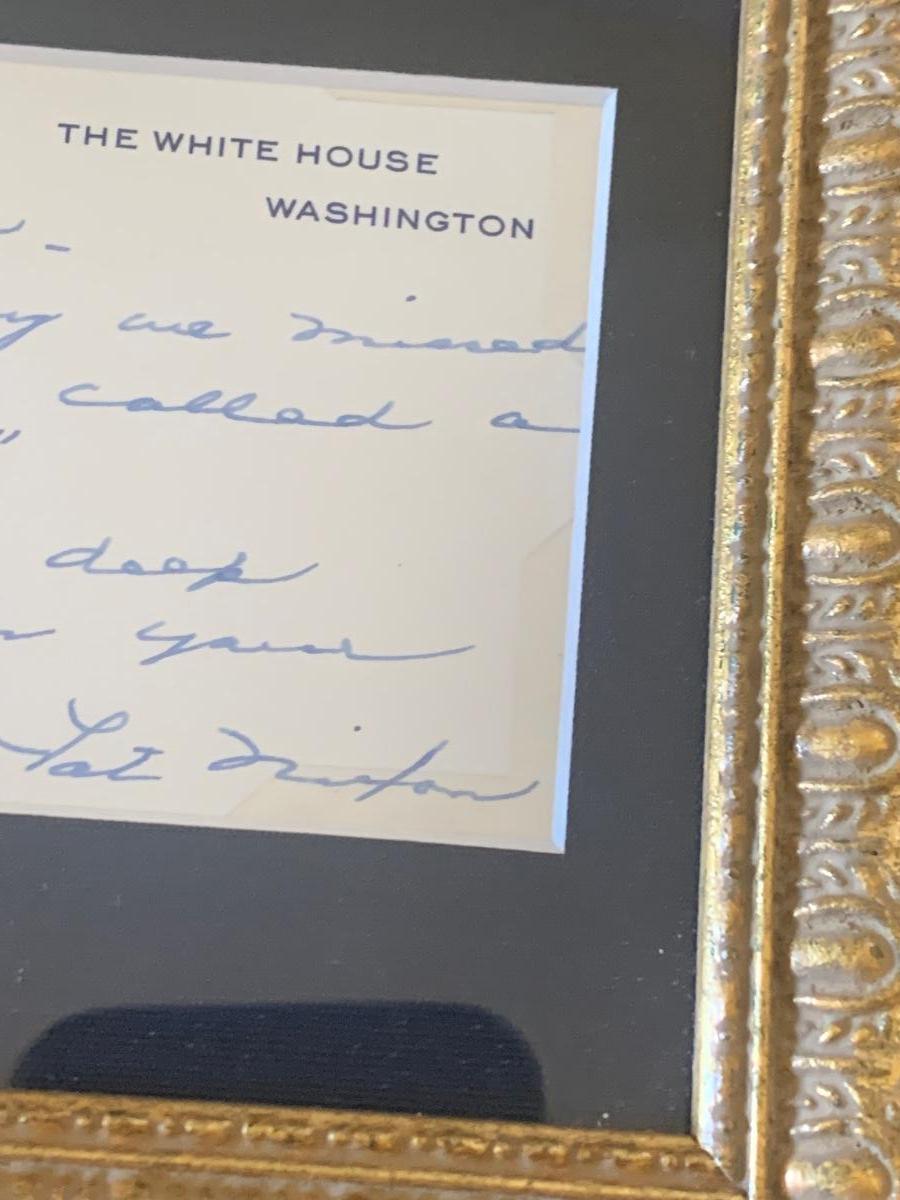 THE WHITE HOUSE
WASHINGTON
-
we missed
called a
"
deep
your
Pat Nixon